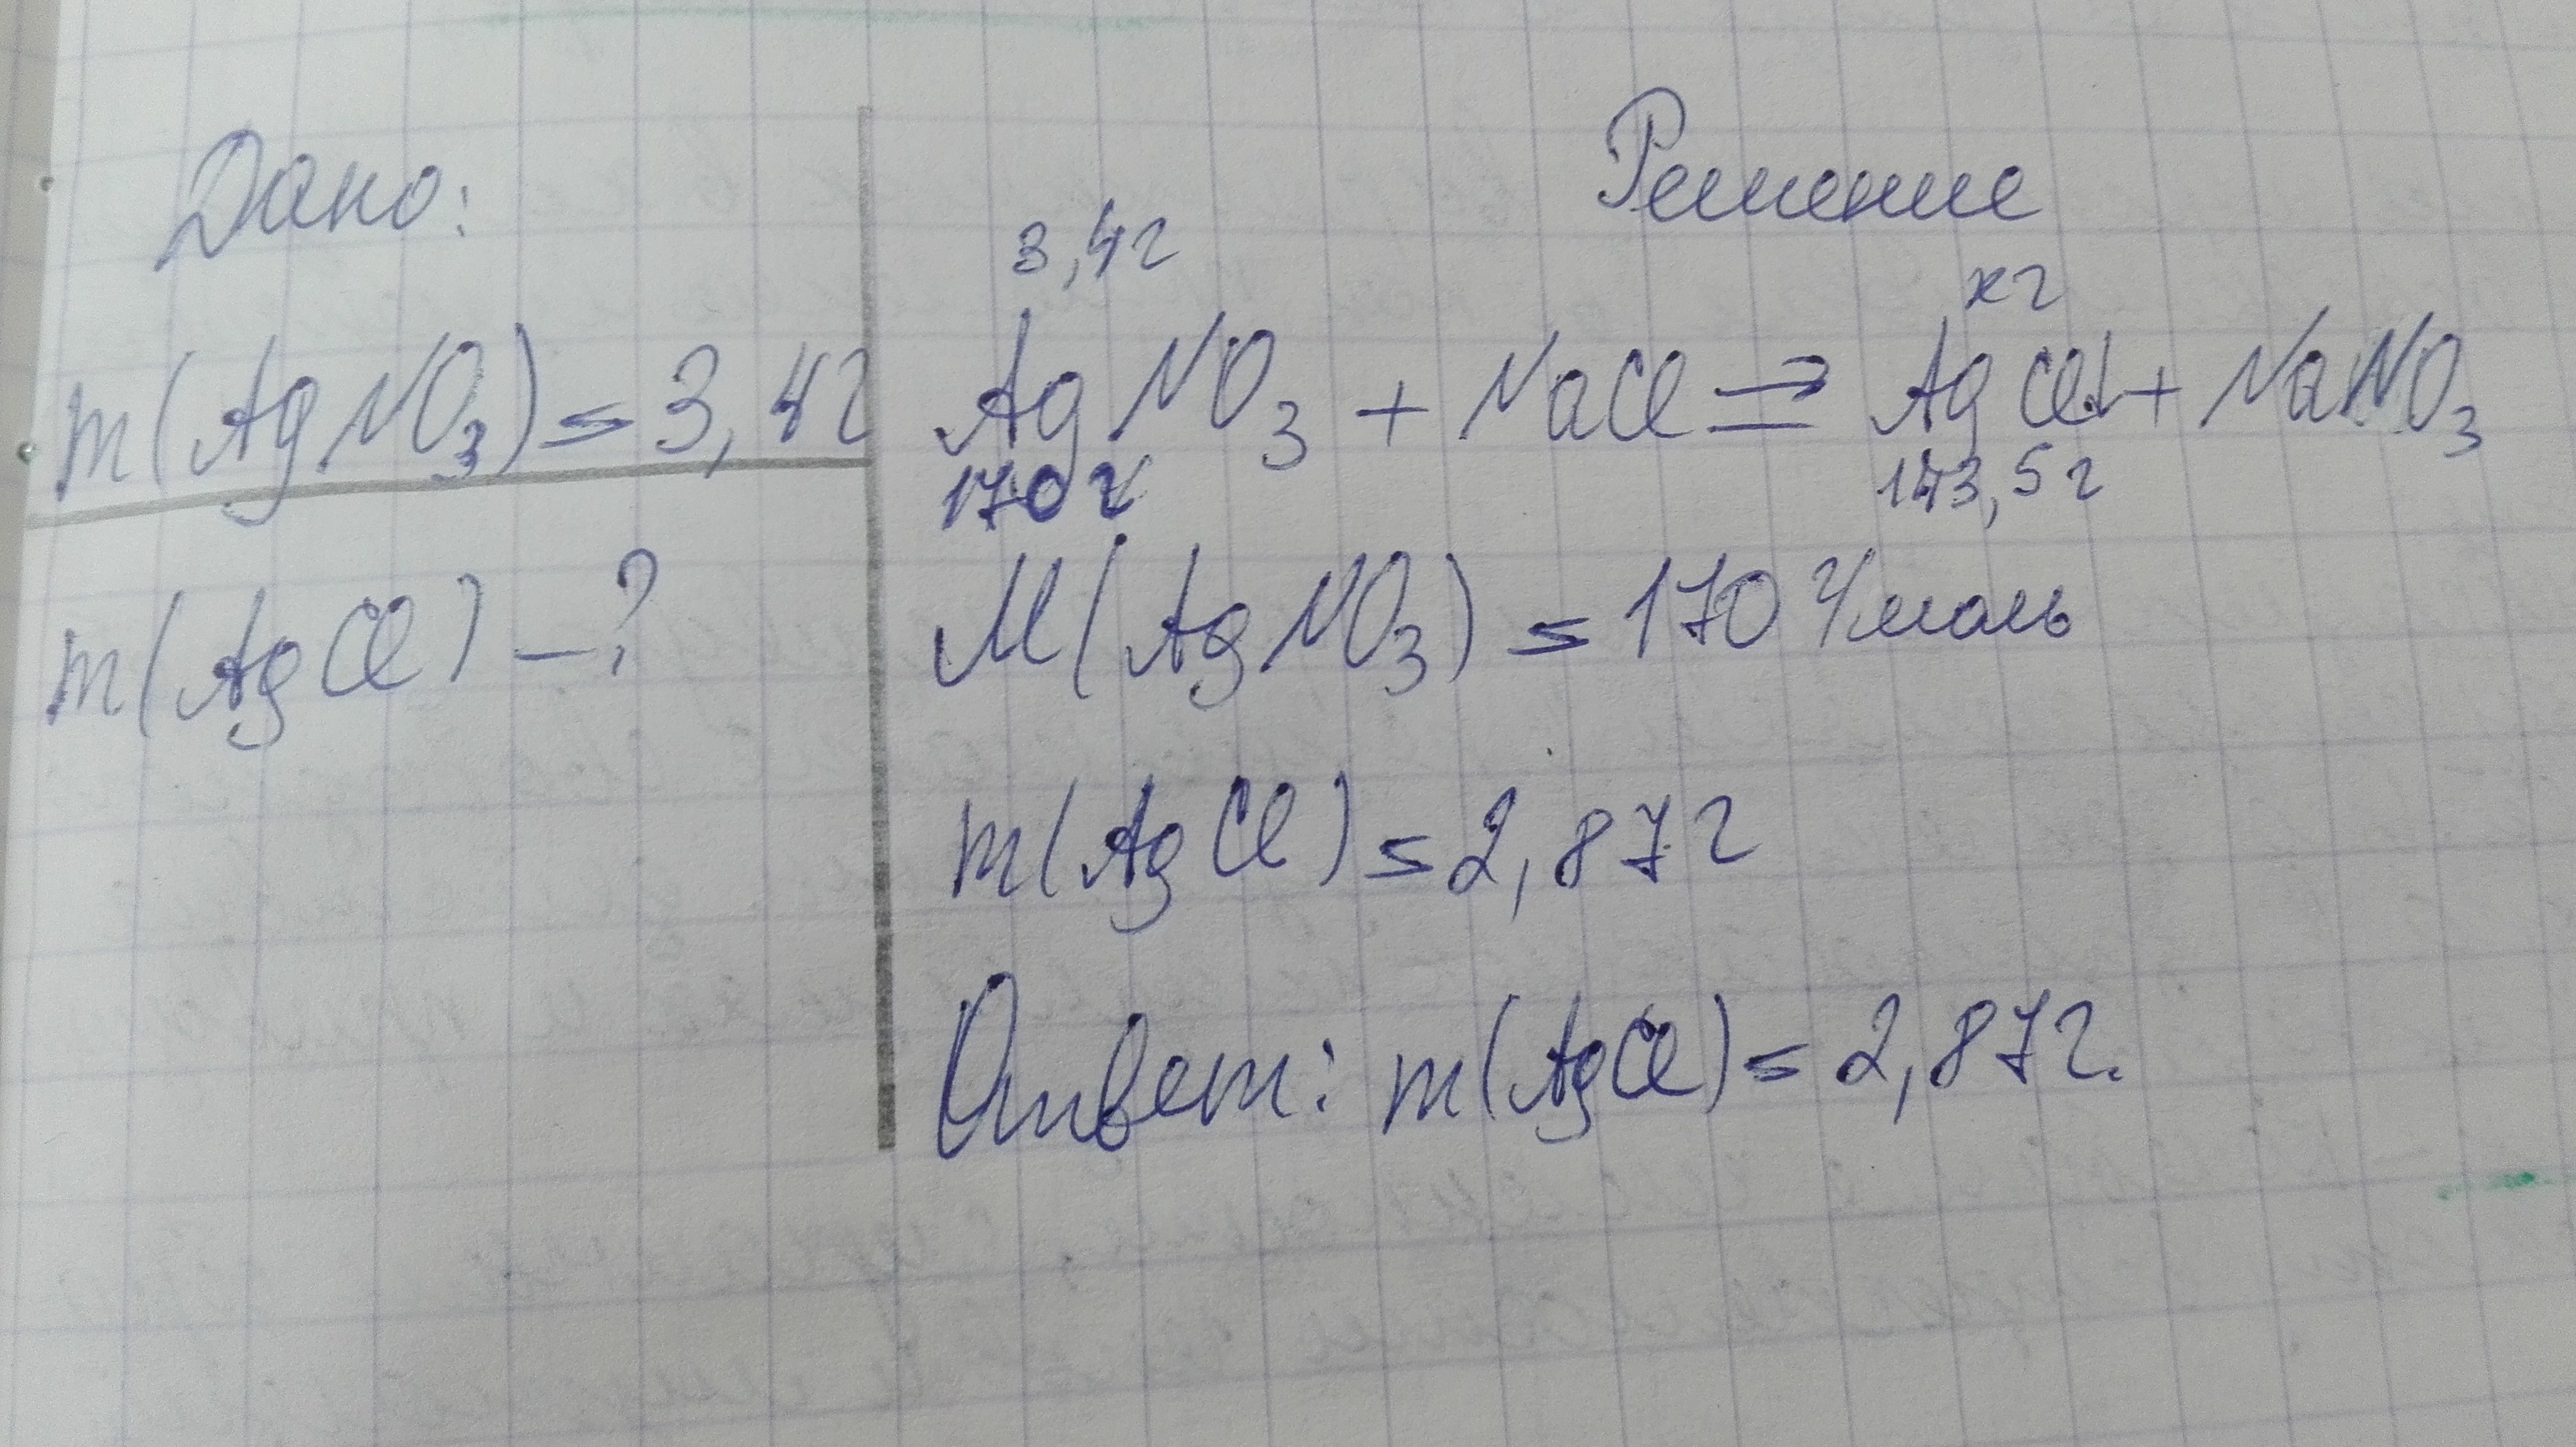 Дано:
m(AgNO₃) = 3,4г
m(AgCl) - ?
Решение
3,4г xг
AgNO₃ + NaCl ⇒ AgCl↓ + NaNO₃
170г 143,5г
M(AgNO₃) = 170 г/моль
m(AgCl) = 2,87г
Ответ: m(AgCl) = 2,87г.